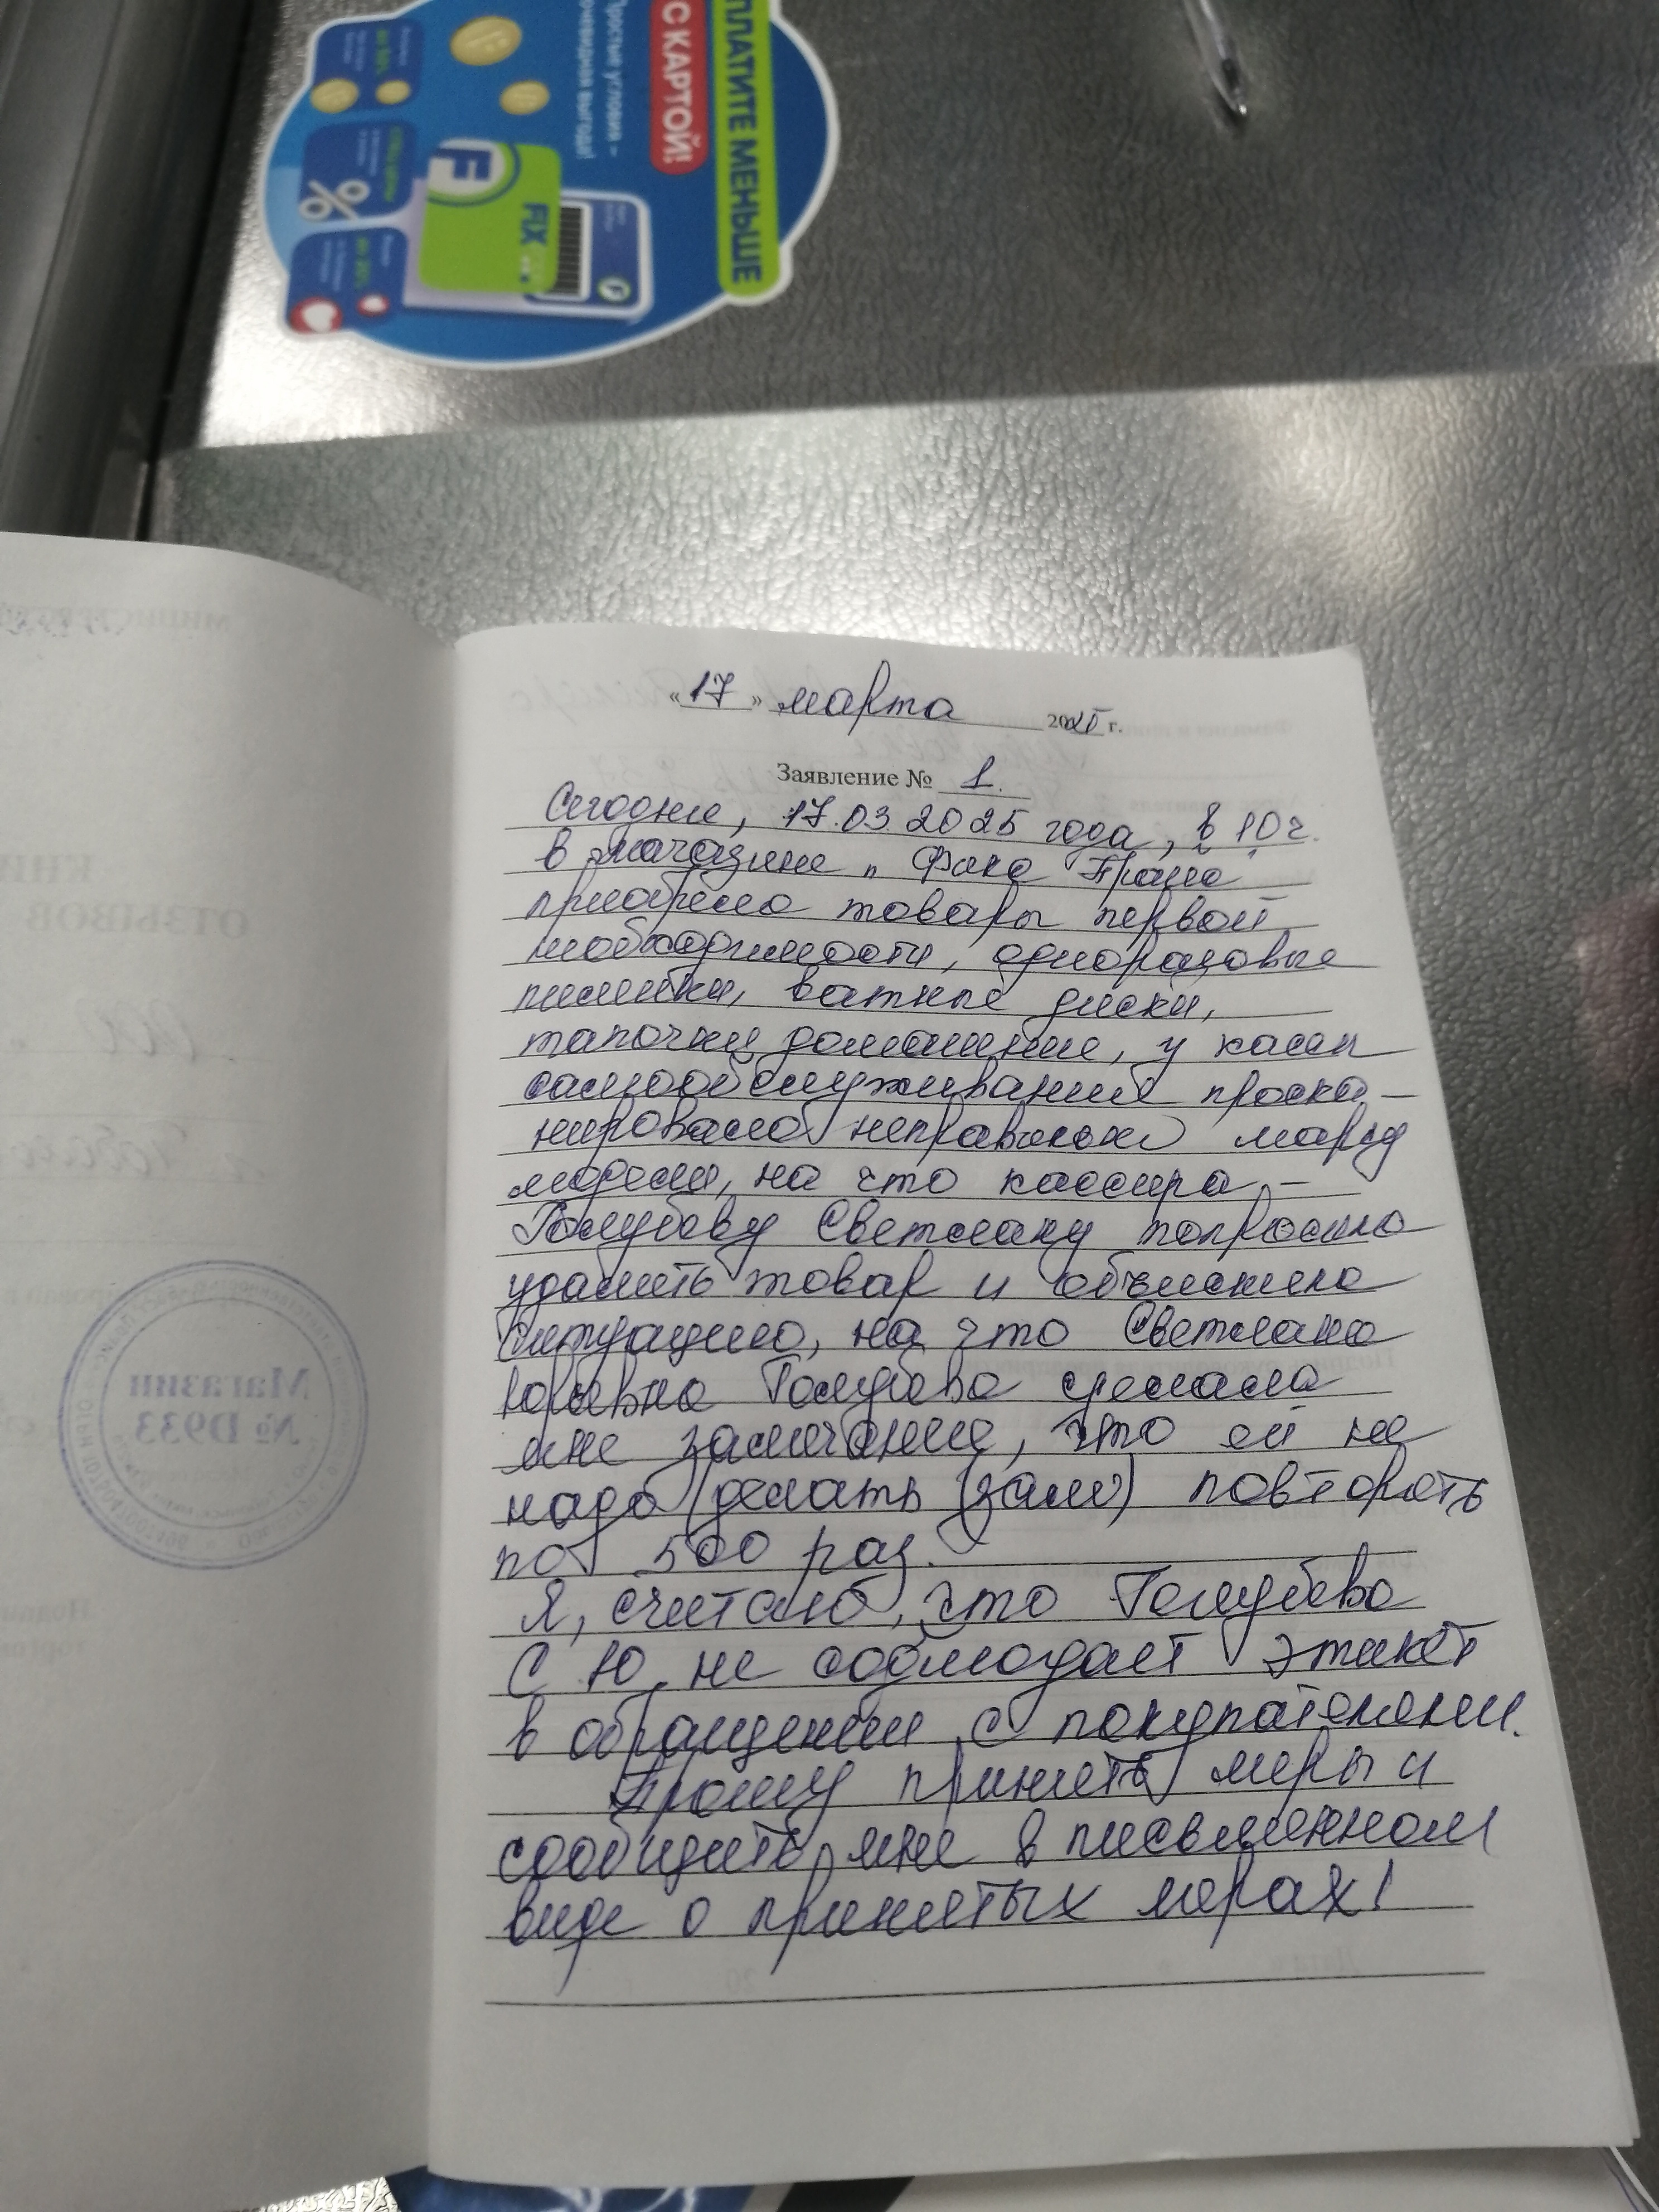 ПЛАТИТЕ МЕНЬШЕ
С КАРТОЙ!
Простые условия –
очевидная выгода!
FIX
%
«17» марта 2025 г.
Заявление № 1.
Сегодня, 17.03.2025 года, в 10 ч.
в магазине „Фикс Прайс
приобрела товары первой
необходимости, одноразовые
пилёнки, ватные диски,
тапочки домашние, у кассы
самообслуживания проска-
нировала неправильно
модели, на что кассира –
Голубеву Светлану попросила
удалить товар и объяснила
ситуацию, на что Светлана
Юрьевна Голубева сделала
мне замечание, что ей не
надо делать (зам) повторять
по 500 раз.
Я, считаю, что Голубева
С Ю. не соблюдает этикет
в обращении с покупателями.
Прошу принять меры и
сообщить мне в письменном
виде о принятых мерах!
Магазин
№ D933